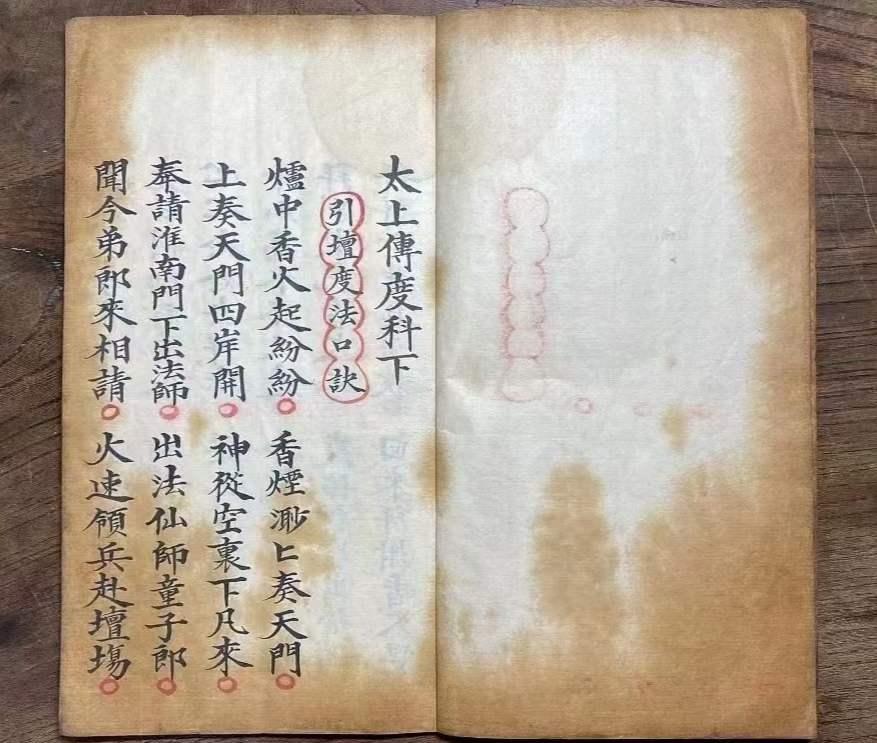 太上傳度科下
引壇度法口訣
爐中香火起紛紛。香煙渺匕奏天門。
上奏天門四岸開。神從空裏下凡來。
奉請淮南門下出法師。出法仙師童子郎。
聞今弟郎來相請。火速領兵赴壇塲。